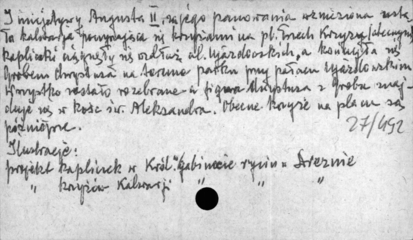 Z inicjatywy Augusta II, za jego panowania wzniesiona zosta
ta kalwarja zaczynająca się krzyżami na pl. Trzech Krzyży, dalszymi
kapliczki ciągnęły się wzdłuż al. Ujazdowskich, a kończyła się
Grobem Chrystusa na terenie parku przy pałacu Ujazdowskim
Wszystko zostało rozebrane a figura Chrystusa z Grobu znaj-
duje się w kość. św. Aleksandra. Obecne krzyże na placu są
późniejsze.
27/492
Ilustracje:
projekt kapliczek w Król. Gabinecie rycin w Dreźnie
" krzyżów Kalwarji " "